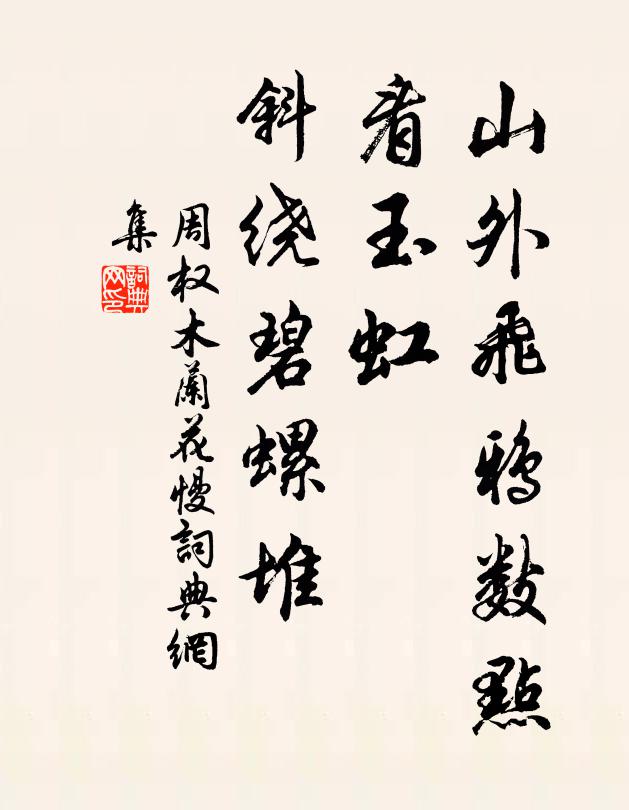 山外飛鴉數點
看玉虹
斜绕碧螺堆
周权木蘭花慢詞典網
集
詞典网印